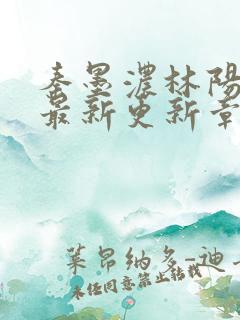 秦墨濃林陽
最新更新章
萊昂納多-迪
未经同意禁止转载